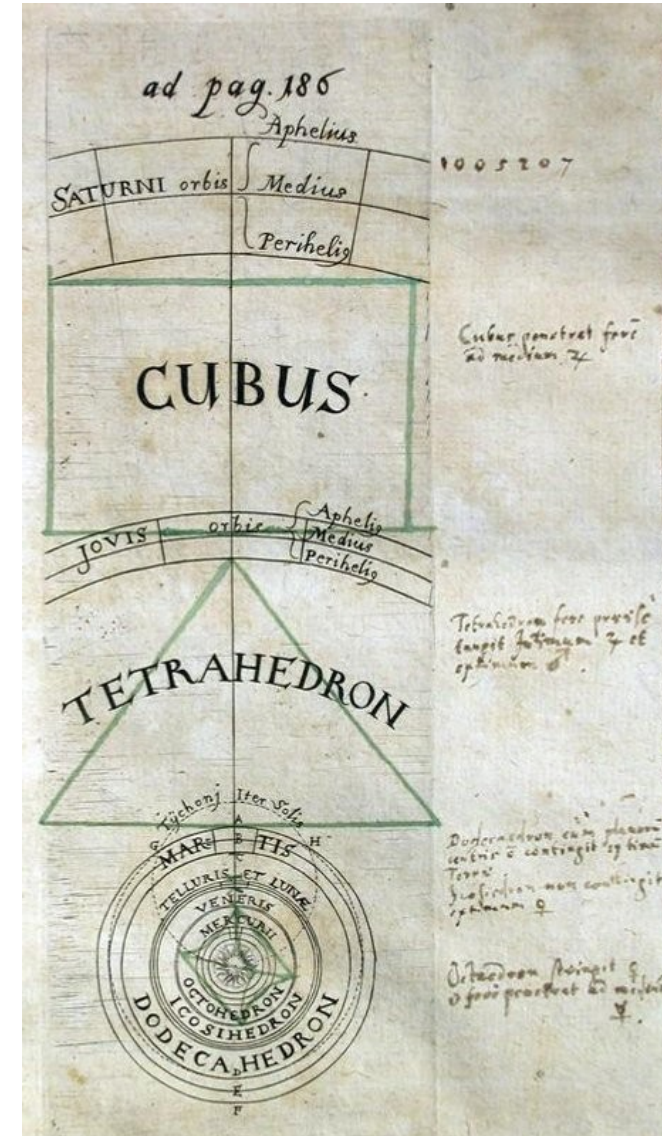 ad pag. 186
Aphelius
SATURNI orbis Medius
Perihelig
1005207
CUBUS
Cubus penetrat ferè
ad medium ♃
JOVIS orbis Aphelig
Medius
Perihelig
TETRAHEDRON
Tetrahedron fere
tangit ♃ et
♂
Tychonj Iter Solis
A
G MAR B TIS H
C
TELLURIS ET LUNÆ
VENERIS
MERCURII
OCTOHEDRON
ICOSIHEDRON
DODECAHEDRON
D
E
F
Dodecaedron cum
centris contingit
Terræ
Icosiedron non contingit
♀
Octaedron
penetrat ad
☿